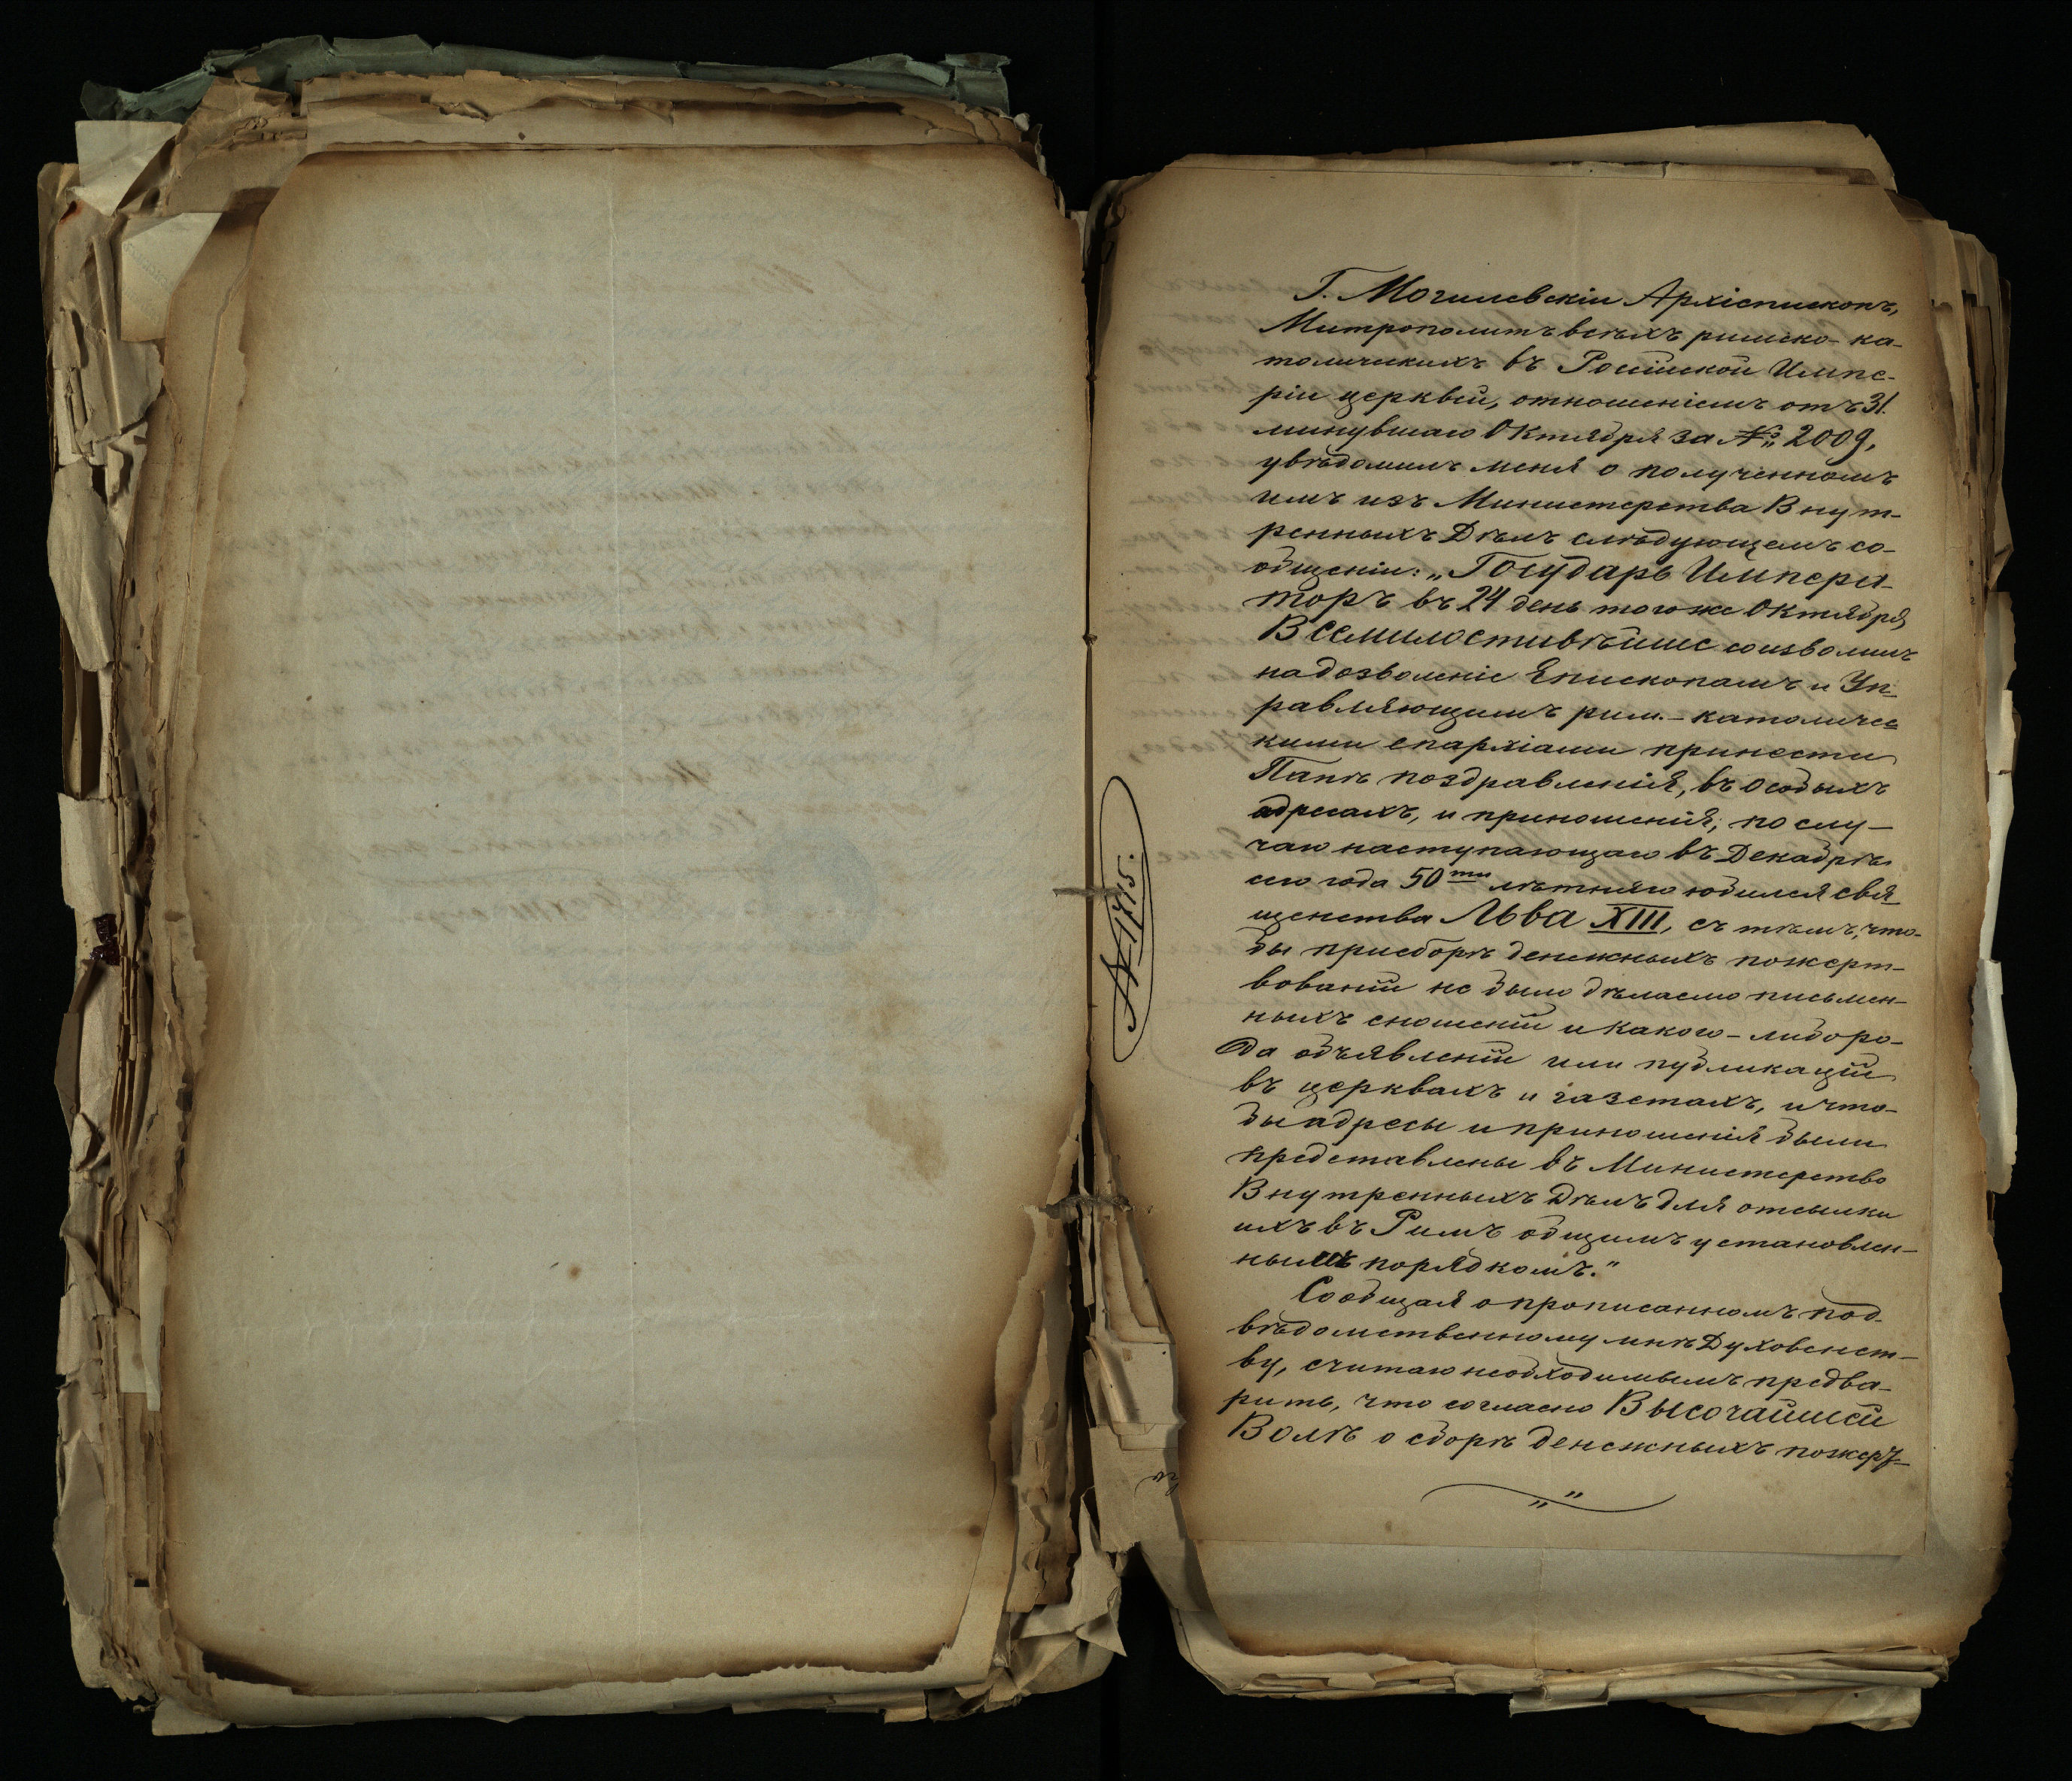 № 1715.
Г. Могилевскій Архіепископъ,
Митрополитъ всѣхъ римско-ка-
толическихъ въ Россійской Импе-
ріи церквей, отношеніемъ отъ 31.
минувшаго Октября за № 2009,
увѣдомилъ меня о полученномъ
имъ изъ Министерства Внут-
ренныхъ Дѣлъ слѣдующемъ со-
общеніи: „Государь Импера-
торъ въ 24 день того же Октября,
Всемилостивѣйше соизволилъ
на дозволеніе Епископамъ и Уп-
равляющимъ рим.-католичес-
кими епархіами принести
Папѣ поздравленія, въ особыхъ
адресахъ, и приношенія, по слу-
чаю наступающаго въ Декабрѣ
сего года 50ти лѣтняго юбилея свя-
щенства Льва XIII, съ тѣмъ, что-
бы при сборѣ денежныхъ пожерт-
вованій не было дѣлаемо письмен-
ныхъ сношеній и какого-либо ро-
да объявленій или публикацій
въ церквахъ и газетахъ, и что-
бы адресы и приношенія были
представлены въ Министерство
Внутренныхъ Дѣлъ для отсылки
ихъ въ Римъ общимъ установлен-
нымъ порядкомъ."
Сообщая о прописанномъ под-
вѣдомственному мнѣ Духовенст-
ву, считаю необходимымъ предва-
рить, что согласно Высочайшей
Волѣ о сборѣ денежныхъ пожерт-